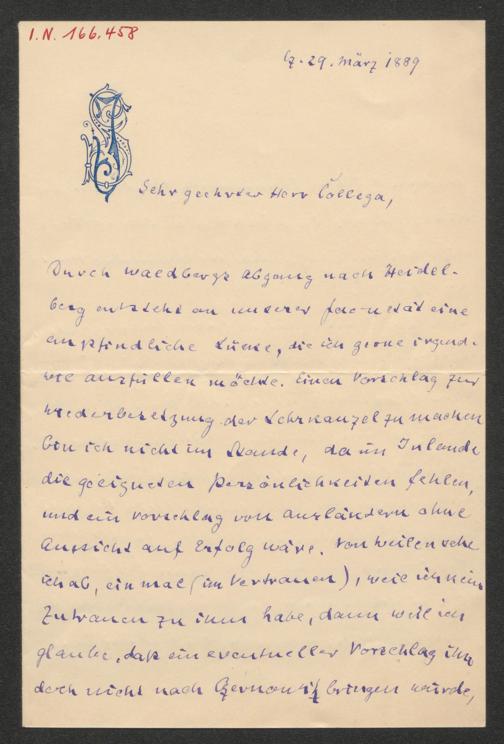 I.N. 166.458
Cz. 29. März 1889
Sehr geehrter Herr College,
Durch Waldbergs Abgang nach Heidel-
berg entsteht an unserer Facultät eine
empfindliche Lücke, die ich gerne irgend-
wie ausfüllen möchte. Einen Vorschlag zur
Wiederbesetzung der Lehrkanzel zu machen
bin ich nicht im Stande, da im Inlande
die geeigneten Persönlichkeiten fehlen,
und ein Vorschlag von Ausländern ohne
Aussicht auf Erfolg wäre. Von Weilen sehe
ich ab, einmal (im Vertrauen), weil ich kein
Zutrauen zu ihm habe, dann weil ich
glaube, daß ein eventueller Vorschlag ihn
doch nicht nach Czernowitz bringen würde,